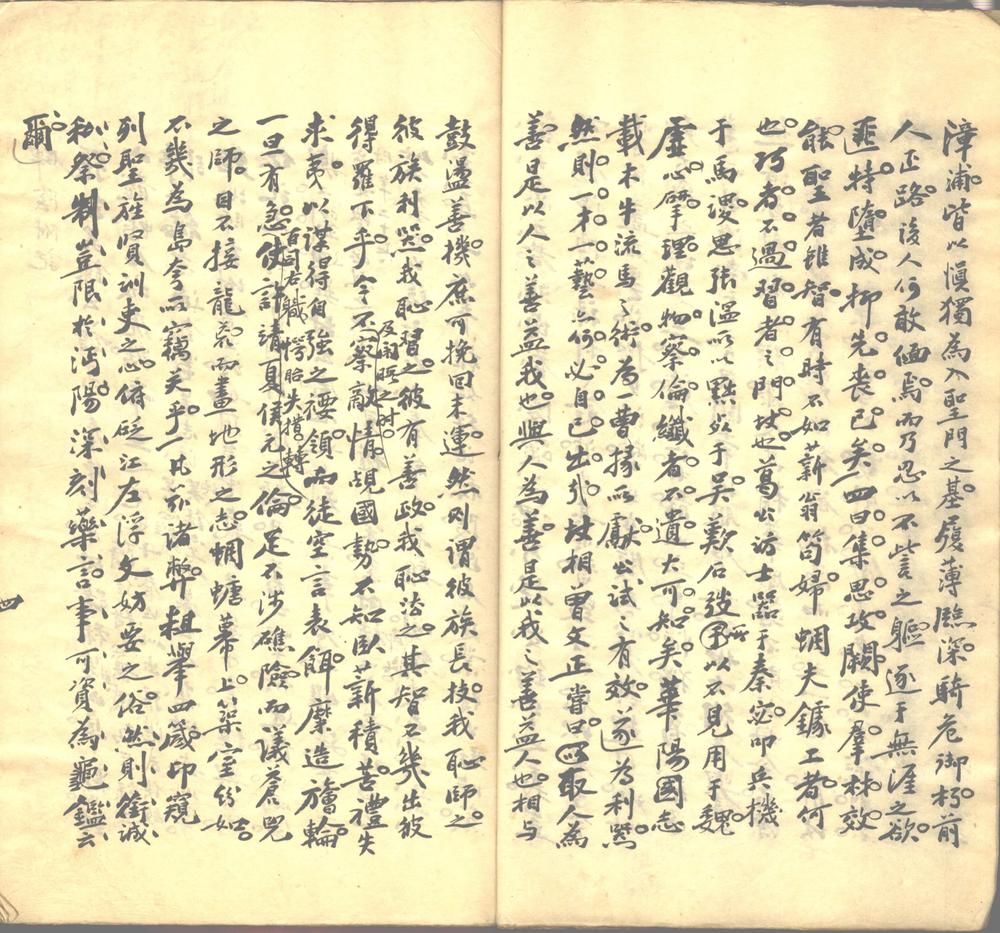 漳浦皆以慎獨為入聖門之基履薄臨深騎危御朽前
人正路後人何敢偭焉而乃忍以不訾之軀逐于無涯之欲
匪特墮成抑先喪已矣四曰集思攻闕使羣材效
能聖者雖智有時不如薪翁笱婦蜩夫鐻工者何
也巧者不過習者之門故也葛公訪士器于秦宓叩兵機
于馬謖思張溫所以點炎于吳歎石弢所以不見用于魏
虛心擘理觀物察倫纖者不遺大可知矣華陽國志
載木牛流馬之術為一曹掾所獻公試之有效遂為利器
然則一才一藝亦何必自己出哉故相曾文正嘗曰取人為
善是以人之善益我也與人為善是以我之善益人也相與
鼓盪善機庶可挽回末運然則謂彼族長技我恥師之
彼族利器我恥習之彼有善政我恥法之其智不幾出彼
及閒暇之時
得羅下乎今不察敵情覘國勢不知臥薪積苦禮失
求夷以謀得自強之要領而徒空言表餌糜造旝輪
一旦有急使計請夏侯元之倫足不涉礁險而議蒼兕
自同右職愕眙失措轉
之師目不接龍荒而畫地形之志蜩螗幕上築室紛如
不幾為島夸所竊笑乎凡茲諸弊粗舉四箴卬窺
列聖旌賢訓吏之心俯砭江左浮文妨要之俗然則銜誠
私祭制豈限於沔陽深刻藥言事可資為龜鑑云
爾
四